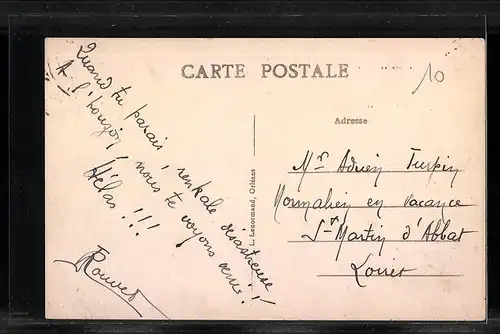 CARTE POSTALE
10
Quand tu parais,
A l'horizon
nous te voyons venir!
Hélas!!!
Rouvet
L. Lenormand, Orléans
Adresse
Mr Adrien Turpin
Normalien en vacance
St Martin d'Abbat
Loiret